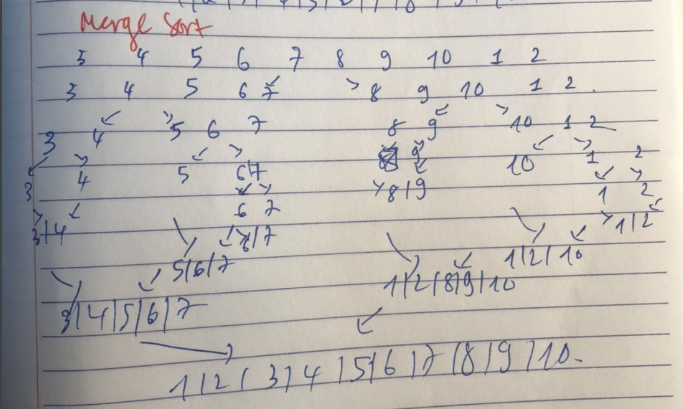 Merge Sort
3 4 5 6 7 8 9 10 1 2
3 4 5 6 7 8 9 10 1 2.
3 4 5 6 7 8 9 10 1 2
3 4 5 6 7 9 10 1 2
6 7 8|9 1 2
3|4 6|7 1|2
5|6|7 1|2|10
3|4|5|6|7 1|2|8|9|10
1|2|3|4|5|6|7|8|9|10.